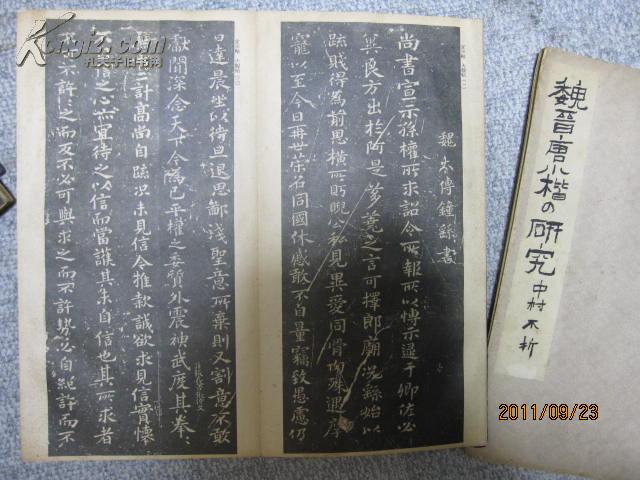 魏太傅鍾繇書
尚書宣示孫權所求詔令所報所以博示逮于卿佐必
冀良方出於阿是芻蕘之言可擇郎廟況繇始以
疏賤得為前思橫所眄睨公私見異愛同骨肉殊遇厚
寵以至今日再世榮名同國休慼敢不自量竊致愚慮仍
日達晨坐以待旦退思鄙淺聖意所棄則又割意不敢
獻聞深念天下今為已平權之委質外震神武度其拳〻
二計高尚自疏況未見信今推款誠欲求見信實懷
信之心亦宜待之以信而當護其未自信也其所求者
不許許之而反不必可與求之而不許勢必自絕許而不
魏晉唐小楷の研究
中村不折
孔夫子旧书网
2011/09/23